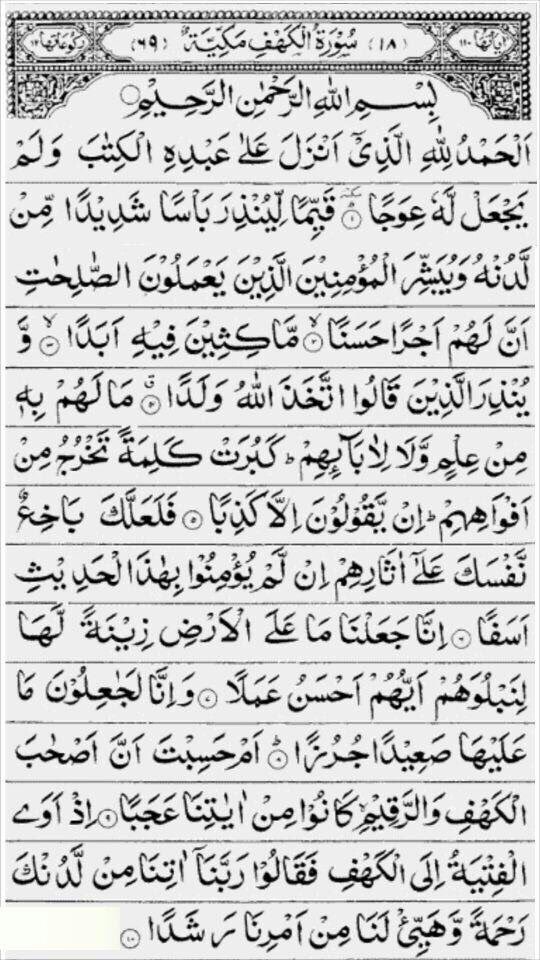 اٰيَاتُهَا ١١٠ (١٨) سُوْرَةُ الْكَهْفِ مَكِّيَّةٌ (٦٩) رُكُوْعَاتُهَا ١٢
بِسْمِ اللهِ الرَّحْمٰنِ الرَّحِيْمِ
اَلْحَمْدُ لِلّٰهِ الَّذِيْٓ اَنْزَلَ عَلٰى عَبْدِهِ الْكِتٰبَ وَلَمْ
يَجْعَلْ لَّهٗ عِوَجًا ۜ ١ قَيِّمًا لِّيُنْذِرَ بَاْسًا شَدِيْدًا مِّنْ
لَّدُنْهُ وَيُبَشِّرَ الْمُؤْمِنِيْنَ الَّذِيْنَ يَعْمَلُوْنَ الصّٰلِحٰتِ
اَنَّ لَهُمْ اَجْرًا حَسَنًا ٢ مَّاكِثِيْنَ فِيْهِ اَبَدًا ٣ وَّ
يُنْذِرَ الَّذِيْنَ قَالُوا اتَّخَذَ اللهُ وَلَدًا ٤ مَا لَهُمْ بِهٖ
مِنْ عِلْمٍ وَّلَا لِاٰبَآئِهِمْ ؕ كَبُرَتْ كَلِمَةً تَخْرُجُ مِنْ
اَفْوَاهِهِمْ ؕ اِنْ يَّقُوْلُوْنَ اِلَّا كَذِبًا ٥ فَلَعَلَّكَ بَاخِعٌ
نَّفْسَكَ عَلٰٓى اٰثَارِهِمْ اِنْ لَّمْ يُؤْمِنُوْا بِهٰذَا الْحَدِيْثِ
اَسَفًا ٦ اِنَّا جَعَلْنَا مَا عَلَى الْاَرْضِ زِيْنَةً لَّهَا
لِنَبْلُوَهُمْ اَيُّهُمْ اَحْسَنُ عَمَلًا ٧ وَاِنَّا لَجٰعِلُوْنَ مَا
عَلَيْهَا صَعِيْدًا جُرُزًا ٨ اَمْ حَسِبْتَ اَنَّ اَصْحٰبَ
الْكَهْفِ وَالرَّقِيْمِ كَانُوْا مِنْ اٰيٰتِنَا عَجَبًا ٩ اِذْ اَوَى
الْفِتْيَةُ اِلَى الْكَهْفِ فَقَالُوْا رَبَّنَآ اٰتِنَا مِنْ لَّدُنْكَ
رَحْمَةً وَّهَيِّئْ لَنَا مِنْ اَمْرِنَا رَشَدًا ١٠